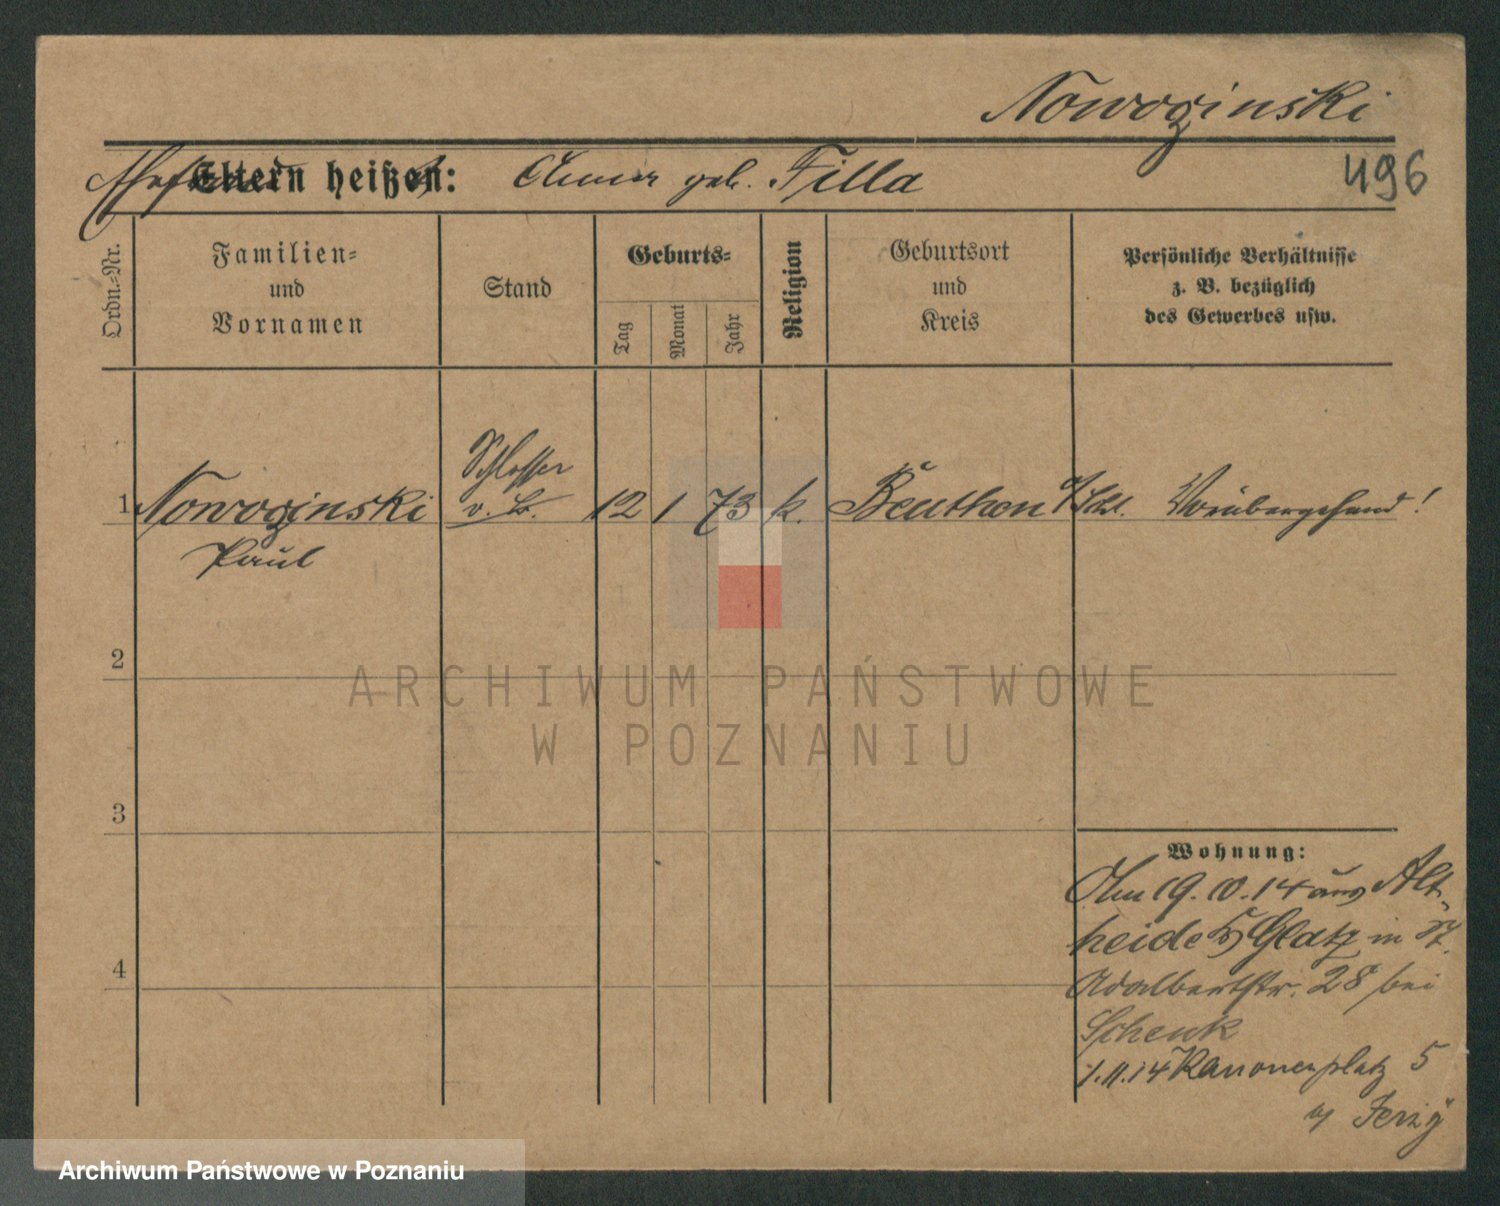 Nowoginski
496
Ehefrau Eltern heißen: Anna geb. Filla
Ordn.-Nr.
Familien-
und
Vornamen
Stand
Geburts-
Tag
Monat
Jahr
Religion
Geburtsort
und
Kreis
Persönliche Verhältnisse
z. B. bezüglich
des Gewerbes usw.
Schlosser
1 Nowoginski 12 1 73 k. Beuthen O/Schl. Vorübergehend!
Paul
2
3
4
Wohnung:
Am 19.10.14 aus Alt-
heide Glatz in St.
Adalbertstr. 28 bei
Schenk
1.11.14 Kanonenplatz 5
Jerzÿ
ARCHIWUM PAŃSTWOWE
W POZNANIU
Archiwum Państwowe w Poznaniu